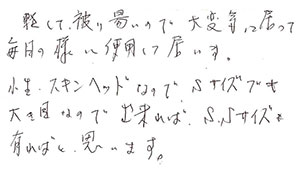 軽くて、被り易いので大変気に居って
毎日の様に使用して居います。
小生、スキンヘッドなので、Sサイズでも
大き目なので出来れば、S,Sサイズも
有ればと、思います。